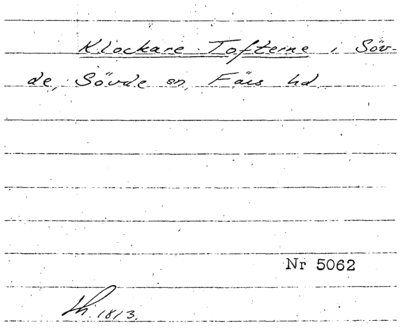 Klockare Tofterne i Söv-
de, Sövde sn, Färs hd
Nr 5062
Lh 1813.